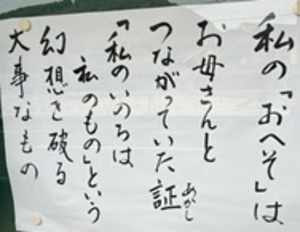 私の「おへそ」は
お母さんと
つながっていた証
あかし
「私のいのちは
私のもの」という
幻想を破る
大事なもの